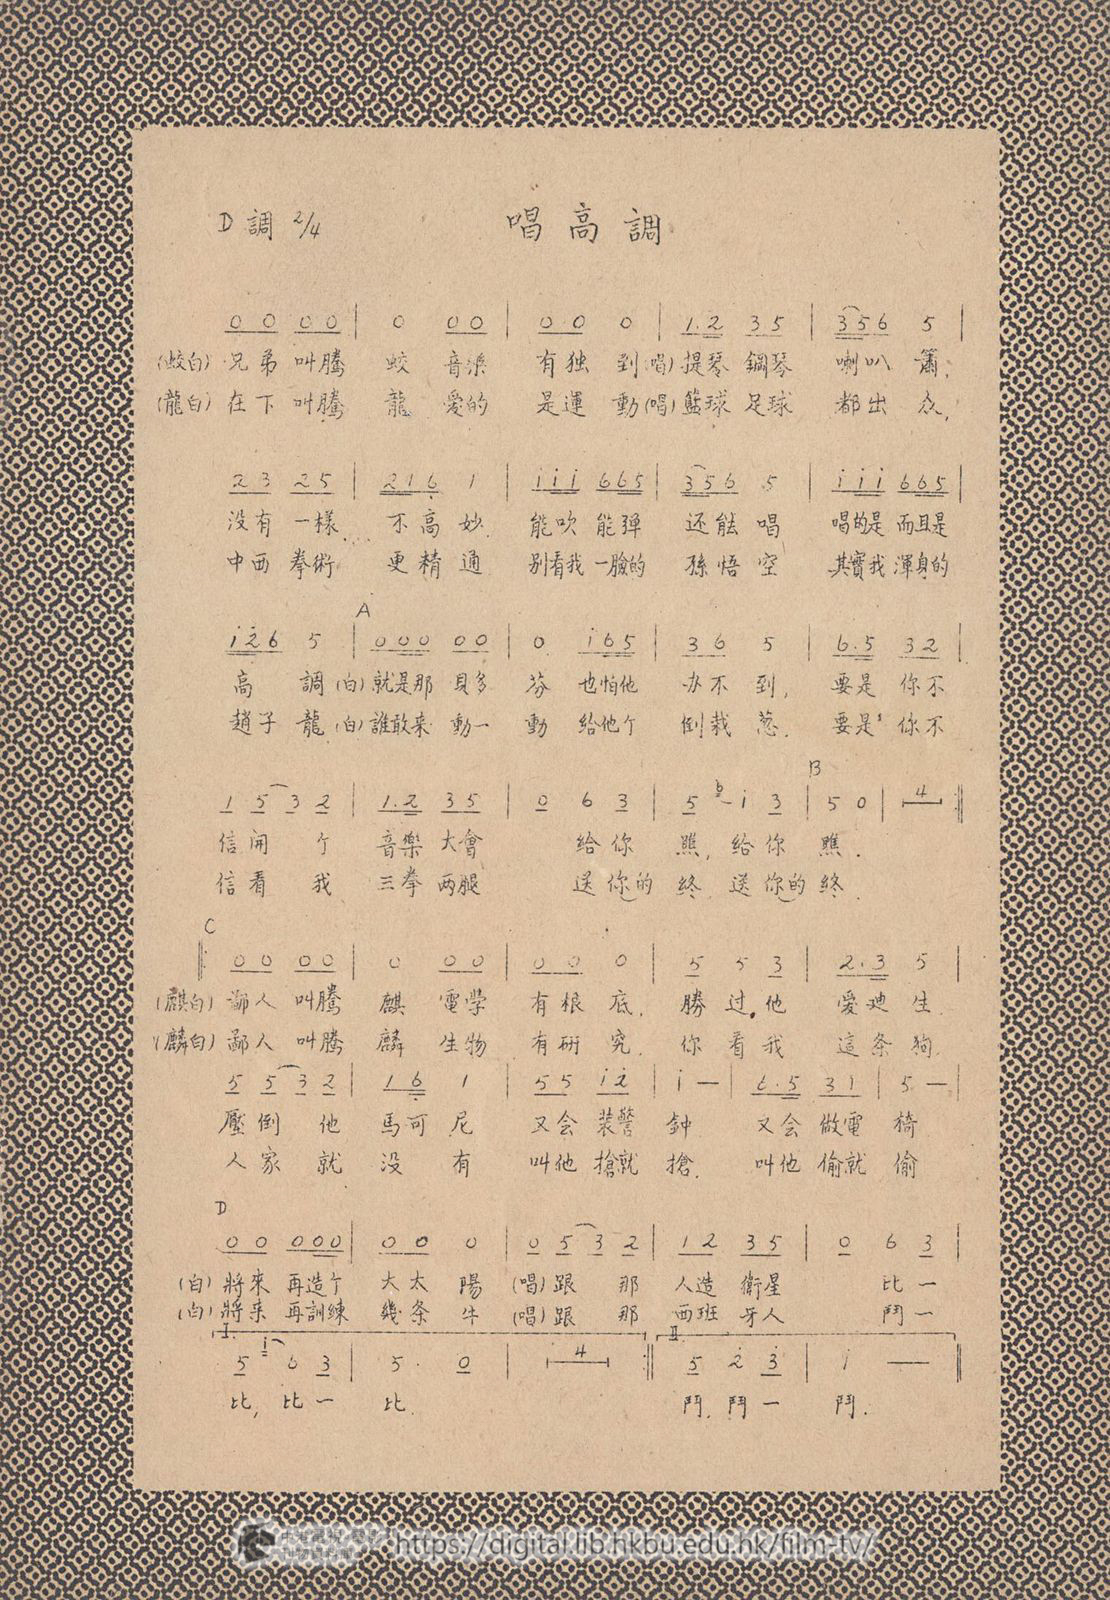 D調 2/4 唱高調
0 0 0 0 | 0 0 0 | 0·0 0 | 1.2 3 5 | 3 5 6 5 |
(蛟白) 兄弟叫騰 蛟 音樂 有独 到 (唱) 提琴 鋼琴 喇叭 簫,
(龍白) 在下叫騰 龍 愛的 是運 動 (唱) 籃球 足球 都出 众,
2 3 2 5 | 2 1 6 1 | i i i 6 6 5 | 3 5 6 5 | i i i 6 6 5 |
没有 一樣 不高 妙. 能吹 能弹 还能 唱 唱的是 而且是
中西 拳術 更精 通 别看我 一臉的 孫悟 空 其實我 渾身的
A
i 2 6 5 | 0 0 0 0 0 | 0. i 6 5 | 3 6 5 | 6.5 3 2 |
高 調 (白) 就是那 貝多 芬 也怕他 办不 到, 要是 你不
趙子 龍 (白) 誰敢来 動一 動 給他个 倒栽 葱. 要是 你不
B
1 5 3 2 | 1.2 3 5 | 0 6 3 | 5 6 i 3 | 5 0 | 4
信開 个 音樂 大會 給你 瞧, 給你 瞧.
信看 我 三拳 两腿 送你的 終, 送你的 終.
C
0 0 0 0 | 0 0 0 | 0 0 0 | 5 5 3 | 2.3 5
(麒白) 鄙人 叫騰 麒 電學 有根 底, 勝过他 愛迪 生.
(麟白) 鄙人 叫騰 麟 生物 有研 究. 你看我 這条 狗.
5 5 3 2 | 1 6 1 | 5 5 i 2 | i — | 6.5 3 1 | 5 — |
壓倒 他 馬可 尼 又会 装警 鈡 又会 做電 椅
人家 就 没 有 叫他 搶就 搶. 叫他 偷就 偷
D
0 0 0 0 0 | 0 0 0 | 0 5 3 2 | 1 2 3 5 | 0 6 3
(白) 將來 再造个 大太 陽 (唱) 跟 那 人造 衛星 比一
(白) 將来 再訓練 幾条 牛 (唱) 跟 那 西班 牙人 鬥一
I. II.
5 i 6 3 | 5. 0 | 4 | 5 2 3 | i — |
比, 比一 比. 鬥, 鬥一 鬥.
https://digital.lib.hkbu.edu.hk/film-tv/